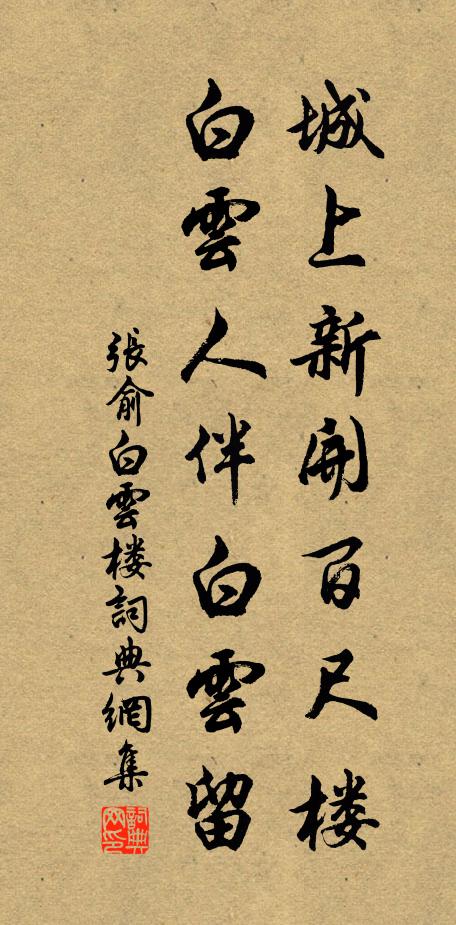 城上新開百尺楼
白雲人伴白雲留
張俞白雲楼詞典網集
詞典网印